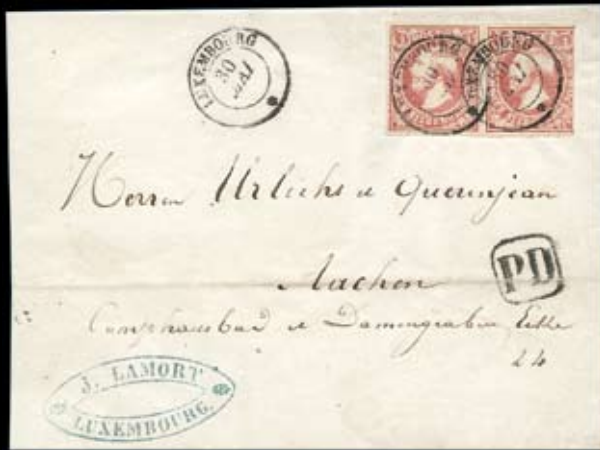 LUXEMBOURG
30
MAI
LUXEMBOURG
30
LUXEMBOURG
30
MAI
Herren Urlichs & Querinjean
Aachen
PD
& Damengraben Ecke
24
J. LAMORT
LUXEMBOURG.